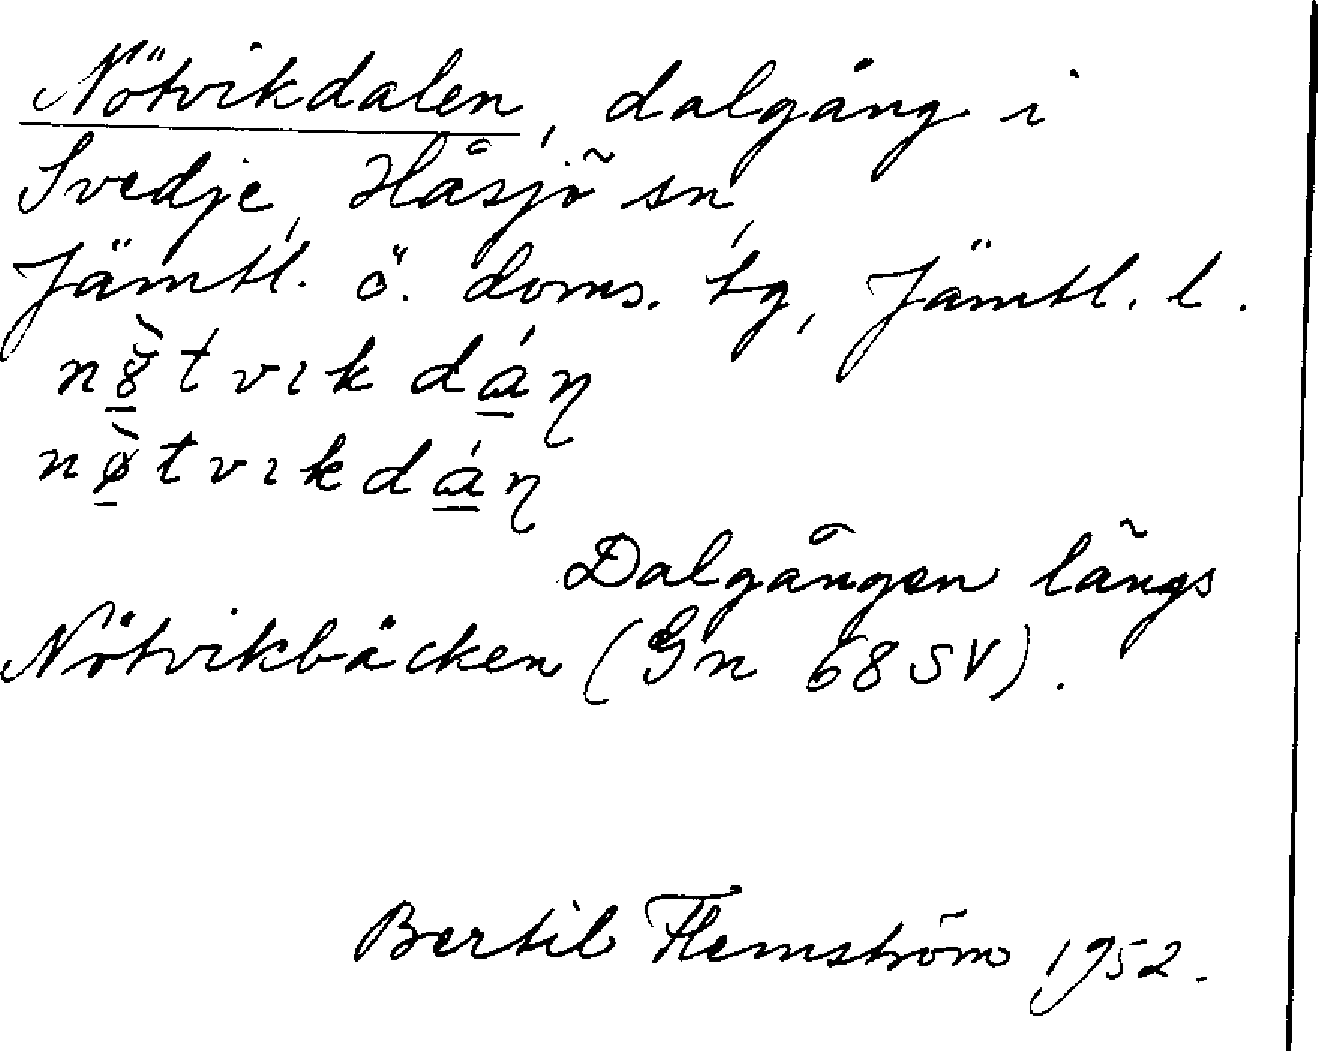 Nötvikdalen, dalgång i
Svedje, Håsjö sn,
Jämtl. ö. doms. tg, Jämtl. l.
Dalgången längs
Nötvikbäcken (Gn 68 SV).
Bertil Flemström 1952.